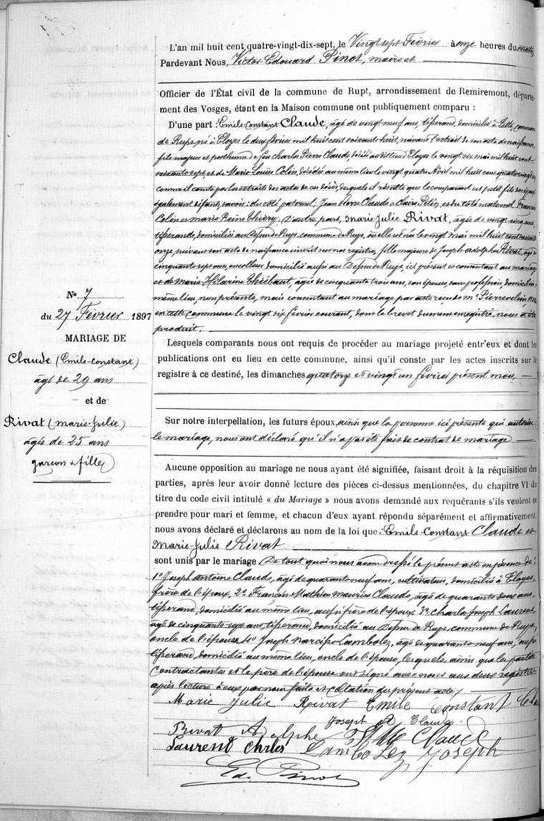 L'an mil huit cent quatre-vingt-dix-sept, le Vingt sept Février à onze heures du matin
Pardevant Nous, Victor Edouard Pinot, maire et
Officier de l'État civil de la commune de Rupt, arrondissement de Remiremont, départe-
ment des Vosges, étant en la Maison commune ont publiquement comparu :
D'une part : Emile-Constant Claude, âgé de vingt neuf ans, tisserand, domicilié à commune
de Rupt, né à Eloyes le février mil huit cent soixante huit, suivant l'extrait de son acte de naissance,
fils majeur et posthume de feu Charles Pierre Claude, décédé au dit lieu d'Eloyes le vingt six mai mil huit cent
soixante sept et de Marie Louise Colin, décédée au même lieu le vingt quatre Avril mil huit cent quatre vingt
comme il conste par les extraits des actes de ces décès, desquels il résulte que le comparant est petit fils de
également défunts, savoir : du côté paternel Jean Pierre Claude et Claire Petin, et du côté maternel François
Colin et Marie Reine Thiéry. D'autre part, Marie-Julie Rivat, âgée de vingt cinq ans
tisserande, domiciliée au commune de Rupt, où elle est née le vingt mai mil huit cent soixante
onze, suivant son acte de naissance inscrit sur nos registres, fille majeure de Joseph Adolphe Rivat, âgé de
cinquante sept ans, domicilié aussi au de Rupt, ici présent et consentant au mariage
et de Marie Hélarine Thiébaut, âgée de cinquante trois ans, son épouse, sans profession, domiciliée au
même lieu, non présente, mais consentant au mariage par acte reçu de Me
en cette commune le vingt six février courant, dont le brevet dûment enregistré nous a été
produit.
Lesquels comparants nous ont requis de procéder au mariage projeté entr'eux et dont les
publications ont eu lieu en cette commune, ainsi qu'il conste par les actes inscrits sur le
registre à ce destiné, les dimanches quatorze et vingt un février présent mois
N° 7
du 27 Février 1897
MARIAGE DE
Claude (Emile-Constant)
âgé de 29 ans
et de
Rivat (Marie-Julie)
âgée de 25 ans
garçon & fille
Sur notre interpellation, les futurs époux, ainsi que la personne ici présente qui autorise
le mariage, nous ont déclaré qu'il n'a pas été fait de contrat de mariage
Aucune opposition au mariage ne nous ayant été signifiée, faisant droit à la réquisition des
parties, après leur avoir donné lecture des pièces ci-dessus mentionnées, du chapitre VI du
titre du code civil intitulé « du Mariage » nous avons demandé aux requérants s'ils veulent se
prendre pour mari et femme, et chacun d'eux ayant répondu séparément et affirmativement,
nous avons déclaré et déclarons au nom de la loi que : Emile-Constant Claude et
Marie-Julie Rivat
sont unis par le mariage De tout quoi nous avons dressé le présent acte en présence de :
1° Joseph Antoine Claude, âgé de quarante neuf ans, cultivateur, domicilié à Eloyes
frère de l'époux, 2° François Mathieu Maurice Claude, âgé de quarante deux ans,
tisserand, domicilié au même lieu, aussi frère de l'époux, 3° Charles Joseph Laurent,
âgé de cinquante sept ans, tisserand, domicilié au de Rupt, commune de Rupt,
oncle de l'épouse, 4° Joseph Narcisse Lambolez, âgé de quarante neuf ans, aussi
tisserand, domicilié au même lieu, oncle de l'épouse, lesquels, ainsi que les parties
contractantes et le père de l'épouse ont signé avec nous aux deux registres
après lecture à eux par nous faite et collation du présent acte.
Marie Julie Rivat Emile Constant Claude
Joseph A Claude
Rivat Adolphe Claude
Laurent Charles Lambolez Joseph
Ed. Pinot